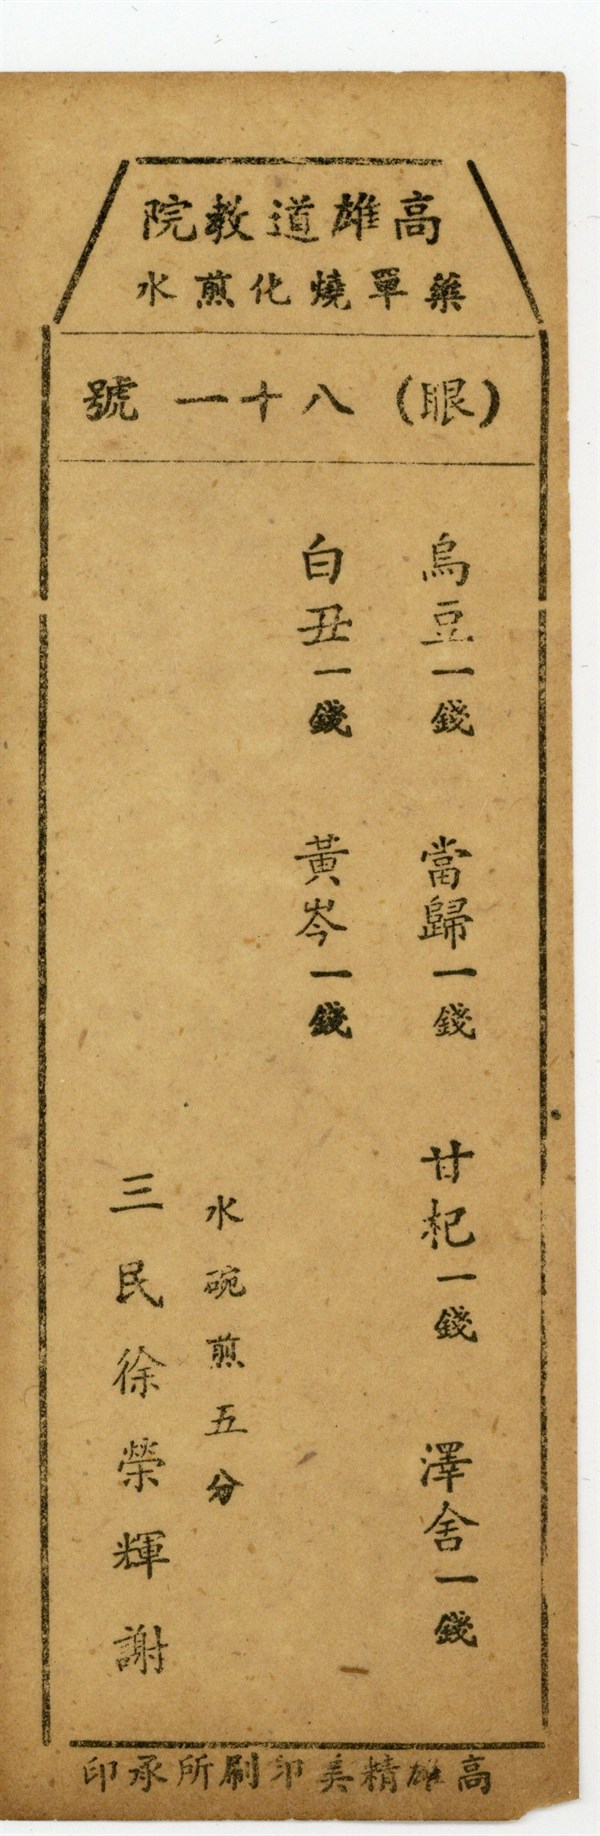 高雄道教院
藥單燒化煎水
（眼）八十一號
烏豆一錢 當歸一錢 甘杞一錢 澤舍一錢
白丑一錢 黃岑一錢
水碗煎五分
三民徐榮輝謝
高雄精美印刷所承印